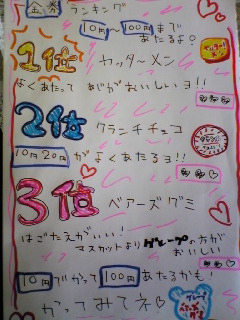 金券ランキング
10円〜100円まで
あたるよ♡
1位 カッターメン
よくあたって あじがおいしいヨ!!
2位 クランチチョコ
10円20円がよくあたるヨ!!
3位 ベアーズグミ
はごたえがいい!
マスカットよりグレープの方が
おいしい
10円でかって100円あたるかも!
かってみてネ♡